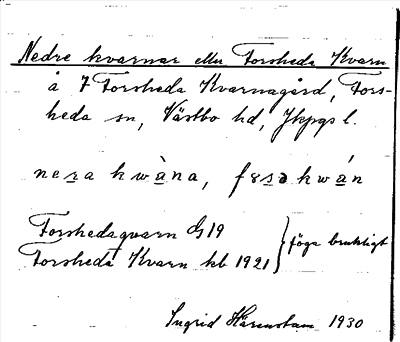 Nedre kvarnar eller Forsheda Kvarn
å 7 Forsheda Kvarnagård, Fors-
heda sn, Västbo hd, Jkpgs l.
neza kwàna, fosa kwán
Forshedaqvarn G 19
Forsheda Kvarn kb 1921 } föga brukligt
Ingrid Härenstam 1930